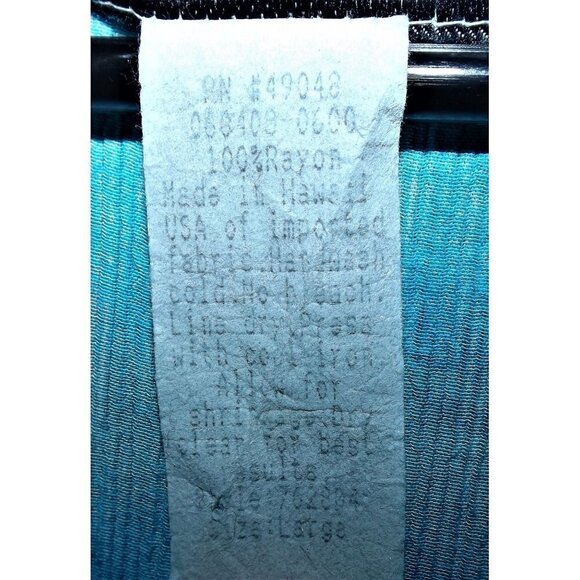 RN #49048
0600
100%Rayon
Made in Hawaii
USA of imported
fabric.Handwash
cold.No bleach.
Line dry.Press
with cool iron
Allow for
shrinkage.Dry
clean for best
results
Size:Large